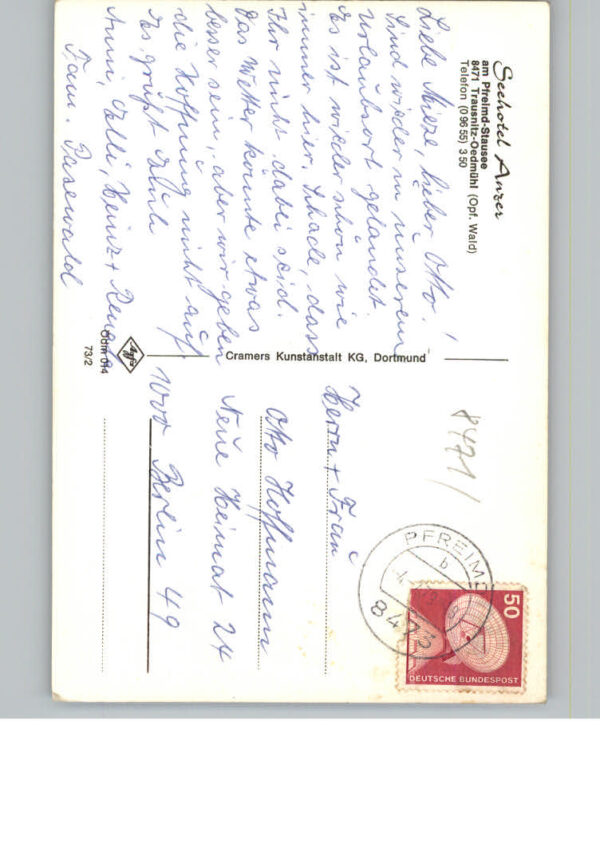 Seehotel Anzer
am Pfreimd-Stausee
8471 Trausnitz-Oedmühl (Opf. Wald)
Telefon (0 96 55) 3 50
Liebe Mieze, lieber Otto!
Sind wieder in unserem
Urlaubsort gelandet.
Es ist wieder schön wie
immer hier. Schade, dass
Ihr nicht dabei seid.
Das Wetter könnte etwas
besser sein, aber wir geben
die Hoffnung nicht auf
Es grüßt Euch
Anni, Heinz +
Fam. Pasewald
Cramers Kunstanstalt KG, Dortmund
Agfa
Ödm 014
73/2
8471/
PFREIMD
b
8473
50
DEUTSCHE BUNDESPOST
Herrn + Frau
Otto Hoffmann
Neue Heimat 24
1000 Berlin 49